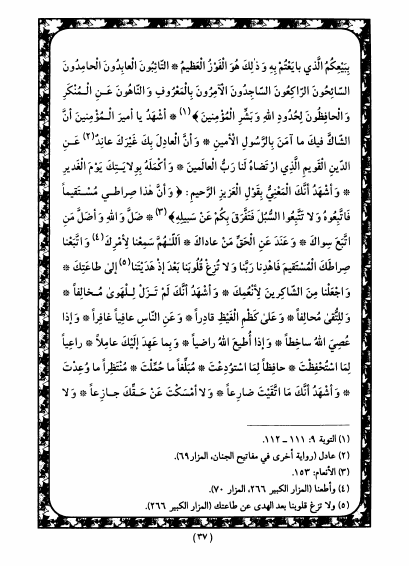 بِبَيْعِكُمُ الَّذي بايَعْتُمْ بِهِ وَذٰلِكَ هُوَ الْفَوْزُ الْعَظيمُ * التّائِبُونَ الْعابِدُونَ الْحامِدُونَ
السّائِحُونَ الرّاكِعُونَ السّاجِدُونَ الآمِرُونَ بِالْمَعْرُوفِ وَالنّاهُونَ عَنِ الْمُنْكَرِ
وَالْحافِظُونَ لِحُدُودِ اللهِ وَبَشِّرِ الْمُؤْمِنينَ ﴾(١) * أَشْهَدُ يا أَميرَ الْمُؤْمِنينَ أَنَّ
الشّاكَّ فيكَ ما آمَنَ بِالرَّسُولِ الْأَمينِ * وَأَنَّ الْعادِلَ بِكَ غَيْرَكَ عانِدٌ(٢) عَنِ
الدّينِ الْقَويمِ الَّذِي ارْتَضاهُ لَنا رَبُّ الْعالَمينَ * وَأَكْمَلَهُ بِوِلايَتِكَ يَوْمَ الْغَديرِ
* وَأَشْهَدُ أَنَّكَ الْمَعْنِيُّ بِقَوْلِ الْعَزيزِ الرَّحيمِ: ﴿ وَأَنَّ هٰذا صِراطي مُسْتَقيماً
فَاتَّبِعُوهُ وَلا تَتَّبِعُوا السُّبُلَ فَتَفَرَّقَ بِكُمْ عَنْ سَبيلِهِ ﴾(٣) * ضَلَّ وَاللهِ وَأَضَلَّ مَنِ
اتَّبَعَ سِواكَ * وَعَنَدَ عَنِ الْحَقِّ مَنْ عاداكَ * اَللّٰهُمَّ سَمِعْنا لِأَمْرِكَ(٤) وَاتَّبَعْنا
صِراطَكَ الْمُسْتَقيمَ فَاهْدِنا رَبَّنا وَلا تُزِغْ قُلُوبَنا بَعْدَ إِذْ هَدَيْتَنا(٥) إِلىٰ طاعَتِكَ *
وَاجْعَلْنا مِنَ الشّاكِرينَ لِأَنْعُمِكَ * وَأَشْهَدُ أَنَّكَ لَمْ تَزَلْ لِلْهَوىٰ مُخالِفاً *
وَلِلتُّقىٰ مُحالِفاً * وَعَلىٰ كَظْمِ الْغَيْظِ قادِراً * وَعَنِ النّاسِ عافِياً غافِراً * وَإِذا
عُصِيَ اللهُ ساخِطاً * وَإِذا أُطيعَ اللهُ راضِياً * وَبِما عَهِدَ إِلَيْكَ عامِلاً * راعِياً
لِمَا اسْتُحْفِظْتَ * حافِظاً لِمَا اسْتُودِعْتَ * مُبَلِّغاً ما حُمِّلْتَ * مُنْتَظِراً ما وُعِدْتَ
* وَأَشْهَدُ أَنَّكَ مَا اتَّقَيْتَ ضارِعاً * وَلا أَمْسَكْتَ عَنْ حَقِّكَ جازِعاً * وَلا
(١) التوبة ٩: ١١١ ــ ١١٢.
(٢) عادل (رواية أخرى في مفاتيح الجنان، المزار٦٩).
(٣) الأنعام: ١٥٣.
(٤) وأطعنا (المزار الكبير ٢٦٦، المزار ٧٠).
(٥) ولا تزغ قلوبنا بعد الهدى عن طاعتك (المزار الكبير ٢٦٦)
(٣٧)